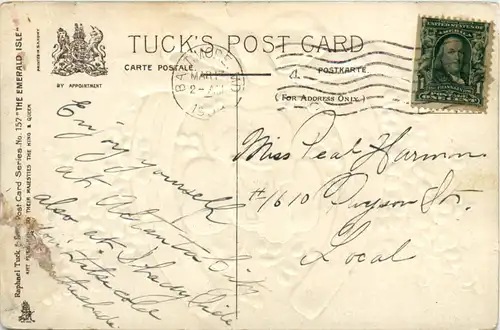 TUCK'S POST CARD
CARTE POSTALE.
POSTKARTE.
(FOR ADDRESS ONLY.)
BY APPOINTMENT
Raphael Tuck & Sons' Post Card Series No. 157 "THE EMERALD ISLE"
ART PUBLISHERS TO THEIR MAJESTIES THE KING & QUEEN
BALTIMORE, MD.
MAR
2-
4
Enjoy yourself
at Atlantic City
also at Shady Side
Miss Pearl Harmon
#1610 Payson St.
Local